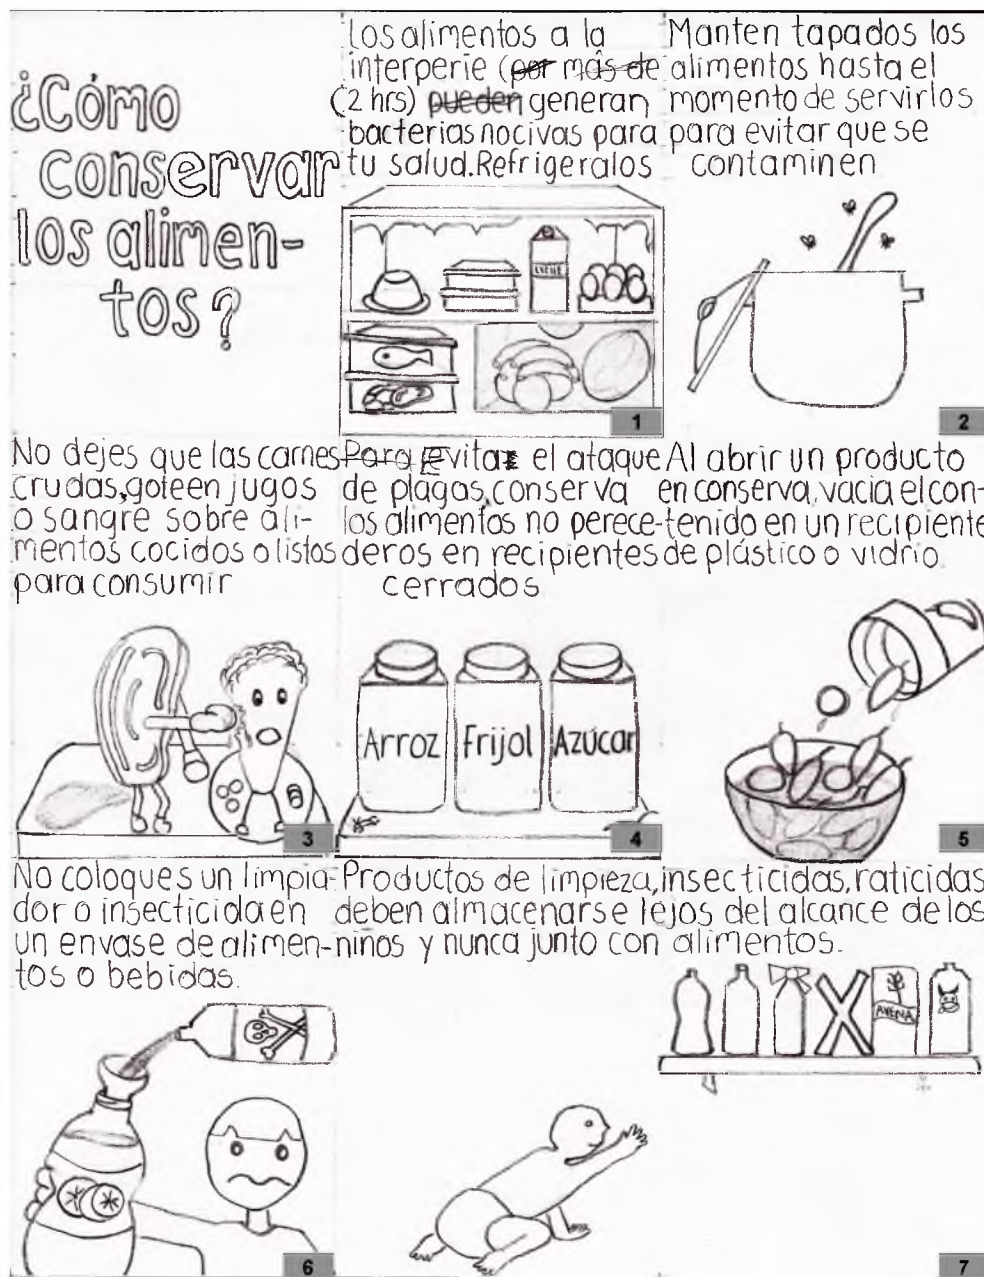 ¿Cómo
conservar
los alimen-
tos?
Los alimentos a la
interperie (por más de
(2 hrs) pueden generan
bacterias nocivas para
tu salud. Refrigeralos
LECHE
1
Manten tapados los
alimentos hasta el
momento de servirlos
para evitar que se
contaminen
2
No dejes que las carnes
crudas, goteen jugos
o sangre sobre ali-
mentos cocidos o listos
para consumir
3
Para Evitar el ataque
de plagas, conserva
los alimentos no perece-
deros en recipientes
cerrados
Arroz
Frijol
Azúcar
4
Al abrir un producto
en conserva, vacia el con-
tenido en un recipiente
de plástico o vidrio.
5
No coloques un limpia-
dor o insecticida en
un envase de alimen-
tos o bebidas.
6
Productos de limpieza, insecticidas, raticidas
deben almacenarse lejos del alcance de los
ninos y nunca junto con alimentos.
AVENA
7